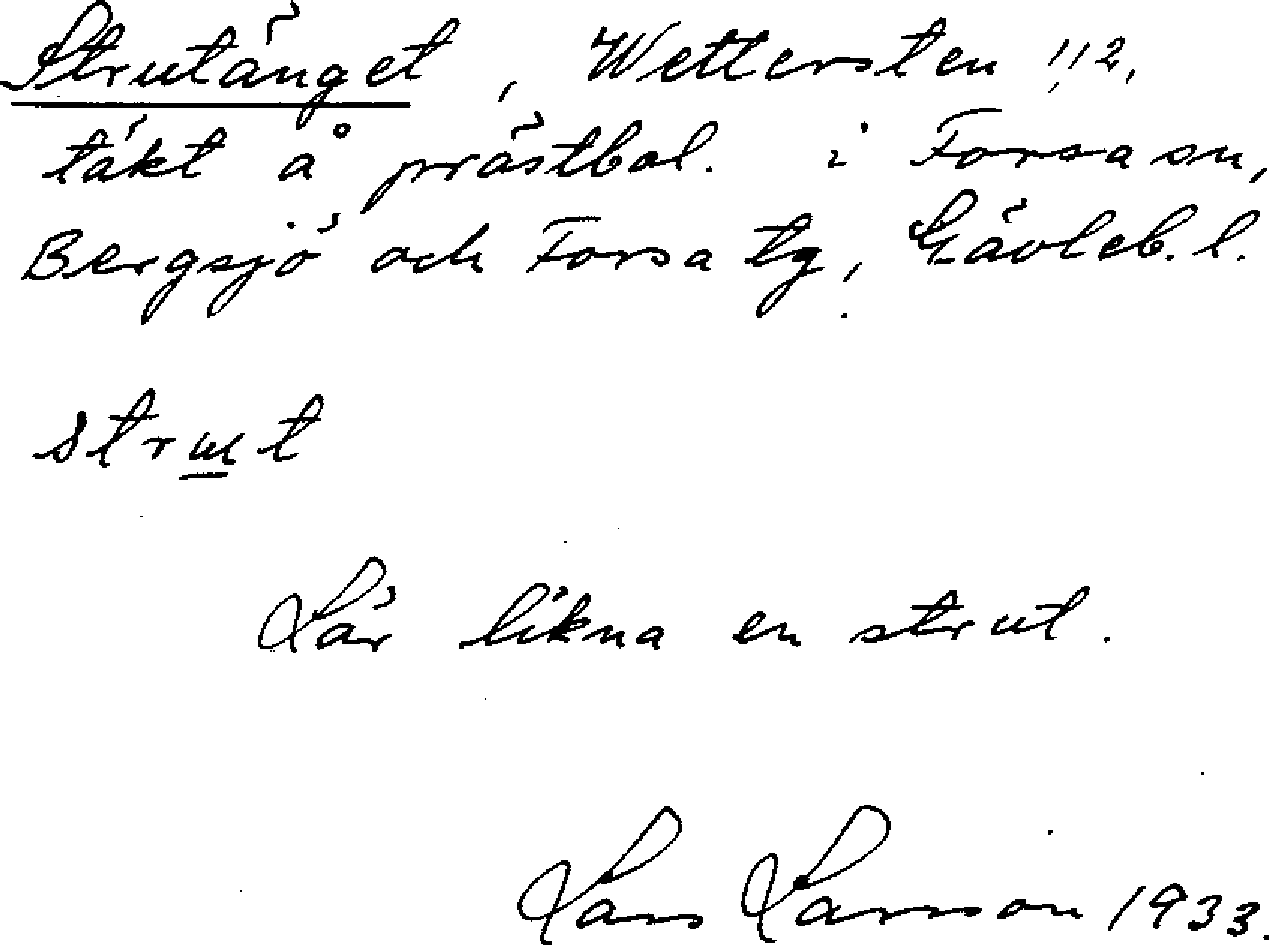 Strutänget, Wettersten 112,
täkt å prästbol. i Forsa sn,
Bergsjö och Forsa tg, Gävleb. l.
strut
Lär likna en strut.
Lars Larsson 1933.